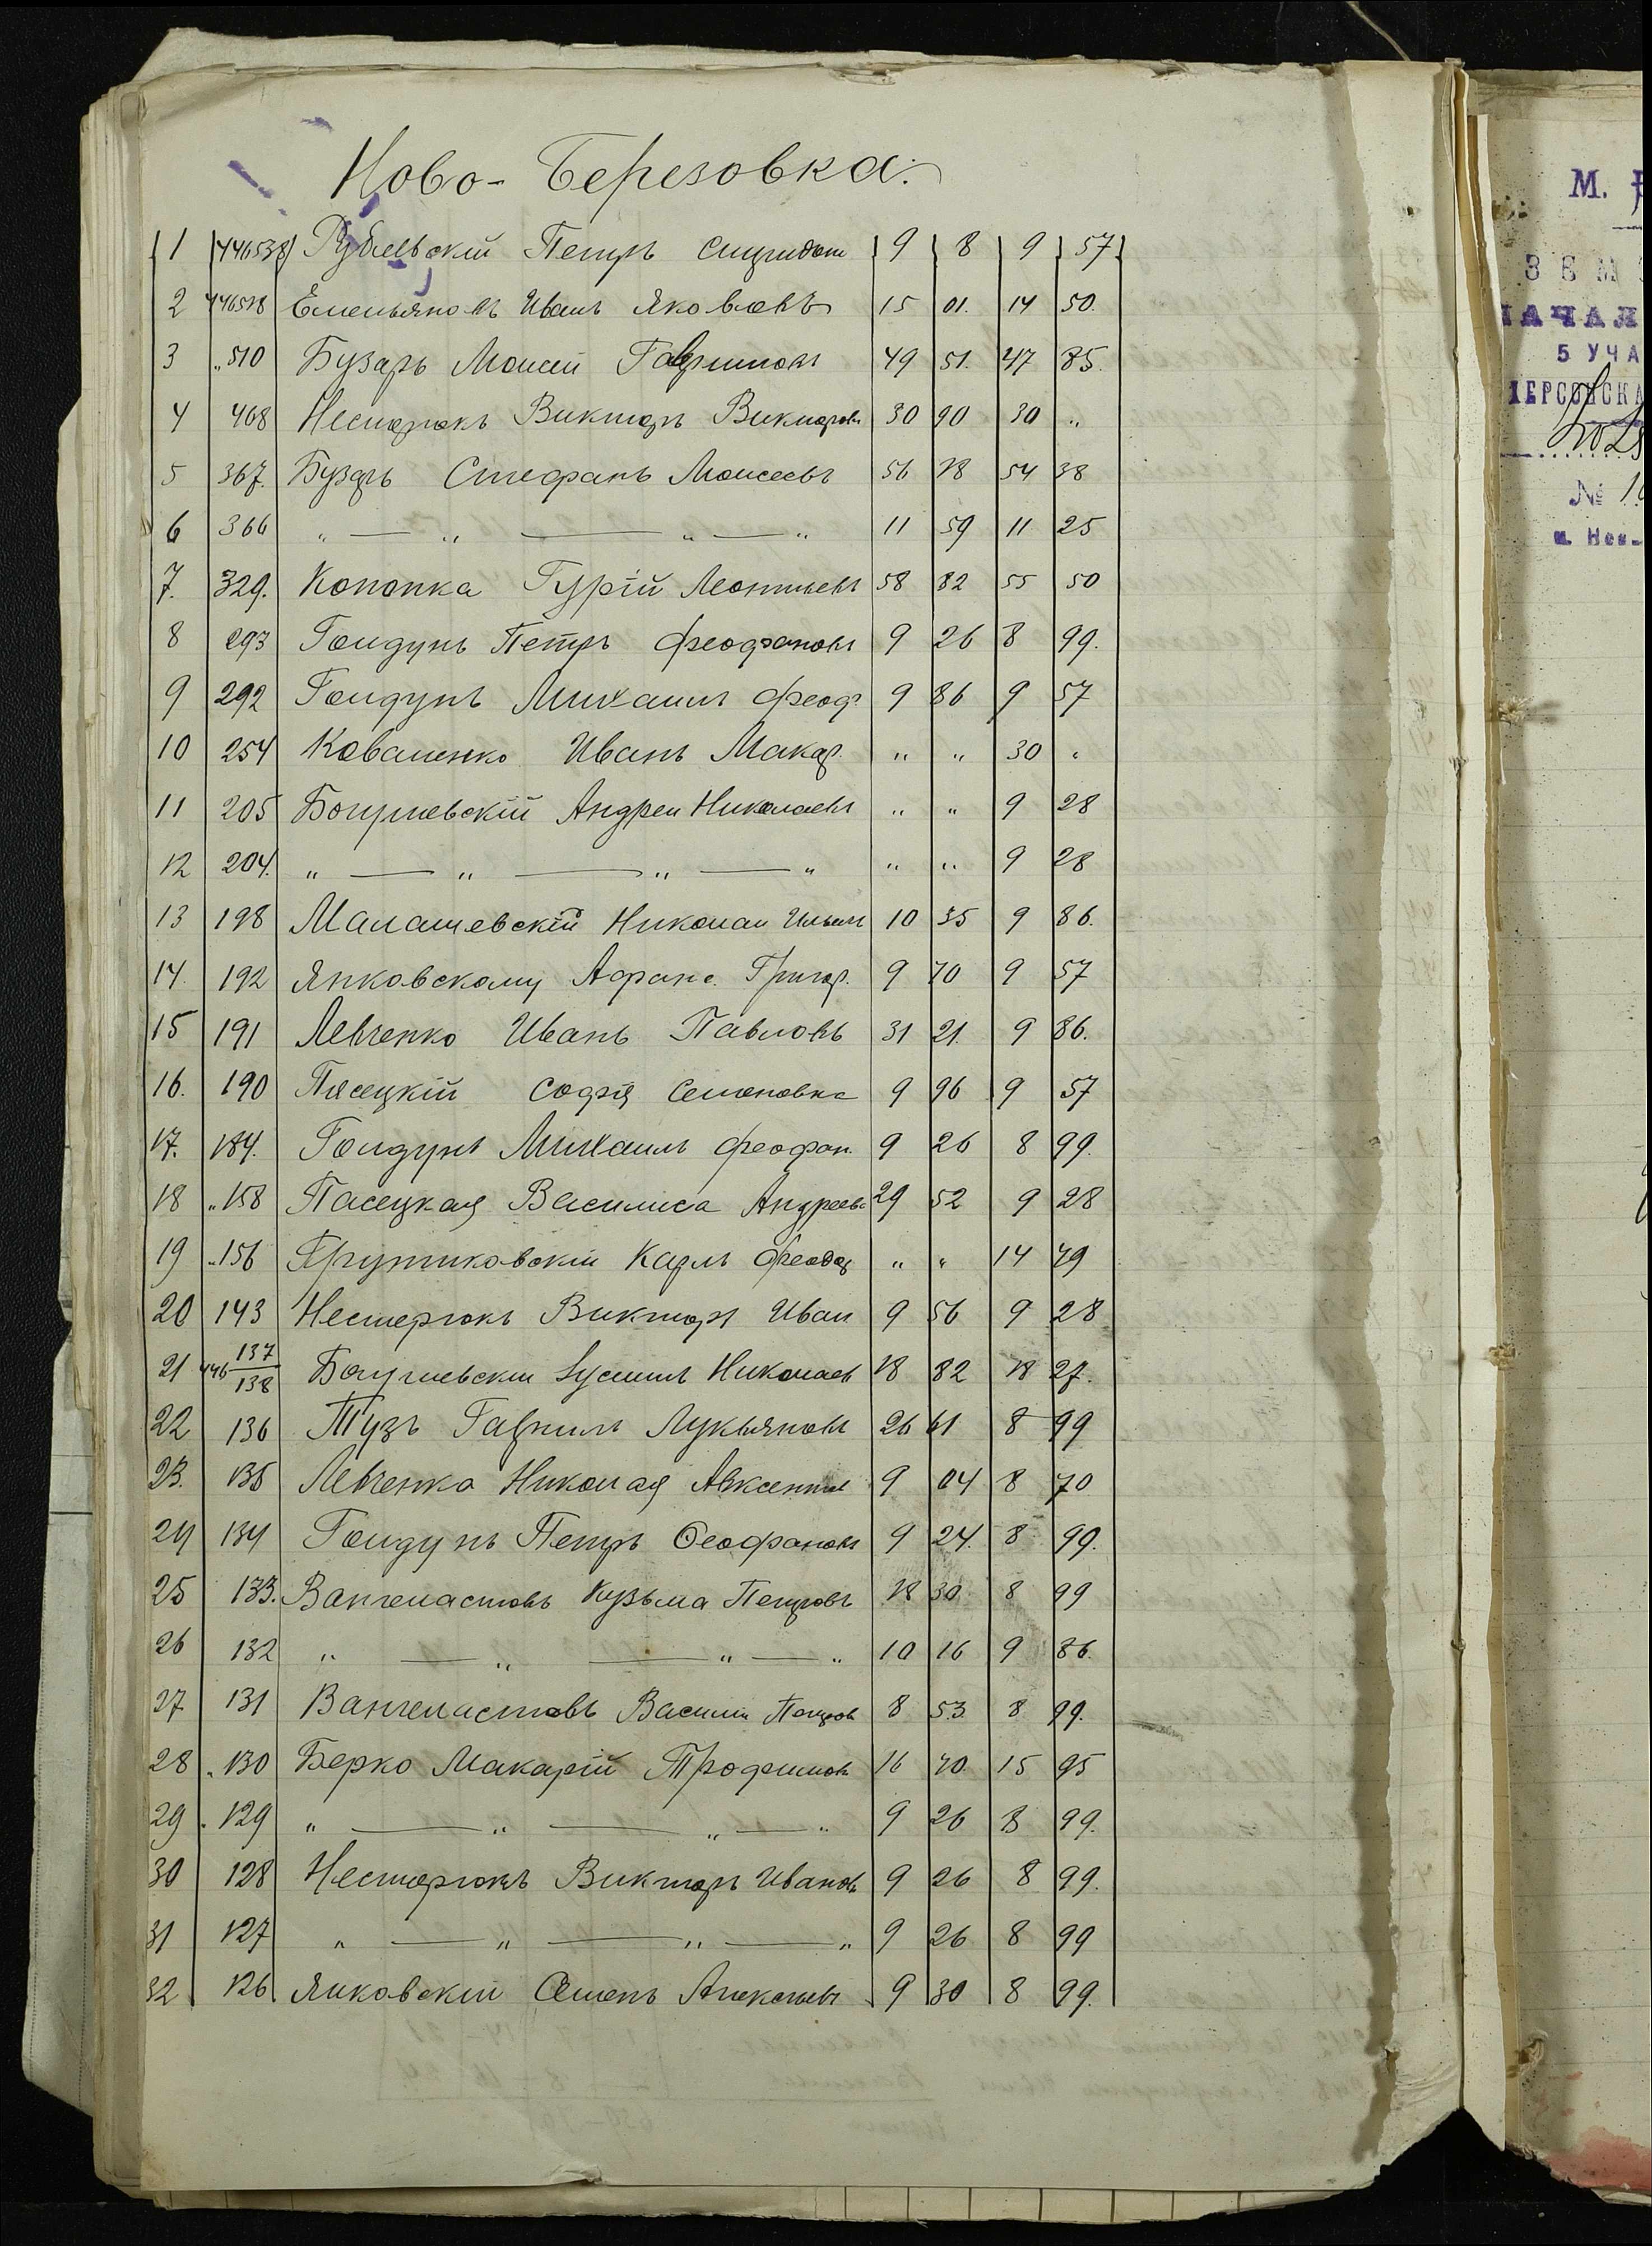 Ново-Березовка.
1 446538 Рублевскій Петръ Спиридон 9 8 9 57
2 446518 Емельяновъ Иванъ Яковлевъ 15 01. 14 50.
3 „510 Бузаръ Моисей Гавриловъ 49 51. 47 85.
4 468 Несторюкъ Викторъ Викторовъ 30 90 30 „
5 367. Бузаръ Стефанъ Моисеевъ 56 28 54 38
6 366 „ — „ — „ — „ 11 59 11 25
7. 329. Копопка Гурій Леонтьевъ 58 82 55 50
8 293 Голдунъ Петръ Феофановъ 9 26 8 99.
9 292 Голдунъ Михаилъ Феоф 9 86 9 57
10 254 Коваленко Иванъ Макар. „ „ 30 „
11 205 Богушевскій Андрей Николаевъ „ „ 9 28
12 204. „ — „ — „ — „ „ „ 9 28
13 198 Малашевскій Николай Ильичъ 10 35 9 86.
14. 192 Янковскому Афанс. Григор. 9 70 9 57
15 191 Левченко Иванъ Павловъ 31 21. 9 86.
16. 190 Пясецкій Софія Семеновна 9 96 9 57
17. 184. Голдунъ Михаилъ Феофан. 9 26 8 99.
18 „158 Пасецкая Василиса Андреевн 29 52 9 28
19 „156 Карлъ Феодор „ „ 14 79
20 143 Нестерюкъ Викторъ Иван 9 56 9 28
21 446 137/138 Богушевскій Николаев 18 82 18 27.
22 136 Тузъ Гавриилъ Лукьяновъ 26 61 8 99
23. 135 Левченка Николая Авксентьев 9 04 8 70
24 134 Голдунъ Петръ Ѳеофановъ 9 24. 8 99.
25 133. Вангеластовъ Кузьма Петровъ 18 30 8 99
26 132 „ — „ — „ — „ 10 16 9 86.
27 131 Вангеластовъ Василій Петров 8 53. 8 99.
28 „130 Берко Макарій Трофимов 16 70. 15 95
29 „129 „ — „ — „ — „ 9 26 8 99.
30 128 Нестерюкъ Викторъ Иванов 9 26 8 99.
31 127 „ — „ — „ — „ 9 26 8 99
32 126 Янковскій Семенъ Алексѣевъ 9 30 8 99.
М.
ЗЕМ
НАЧАЛ
5 УЧА
ХЕРСОНСКА
№ 1